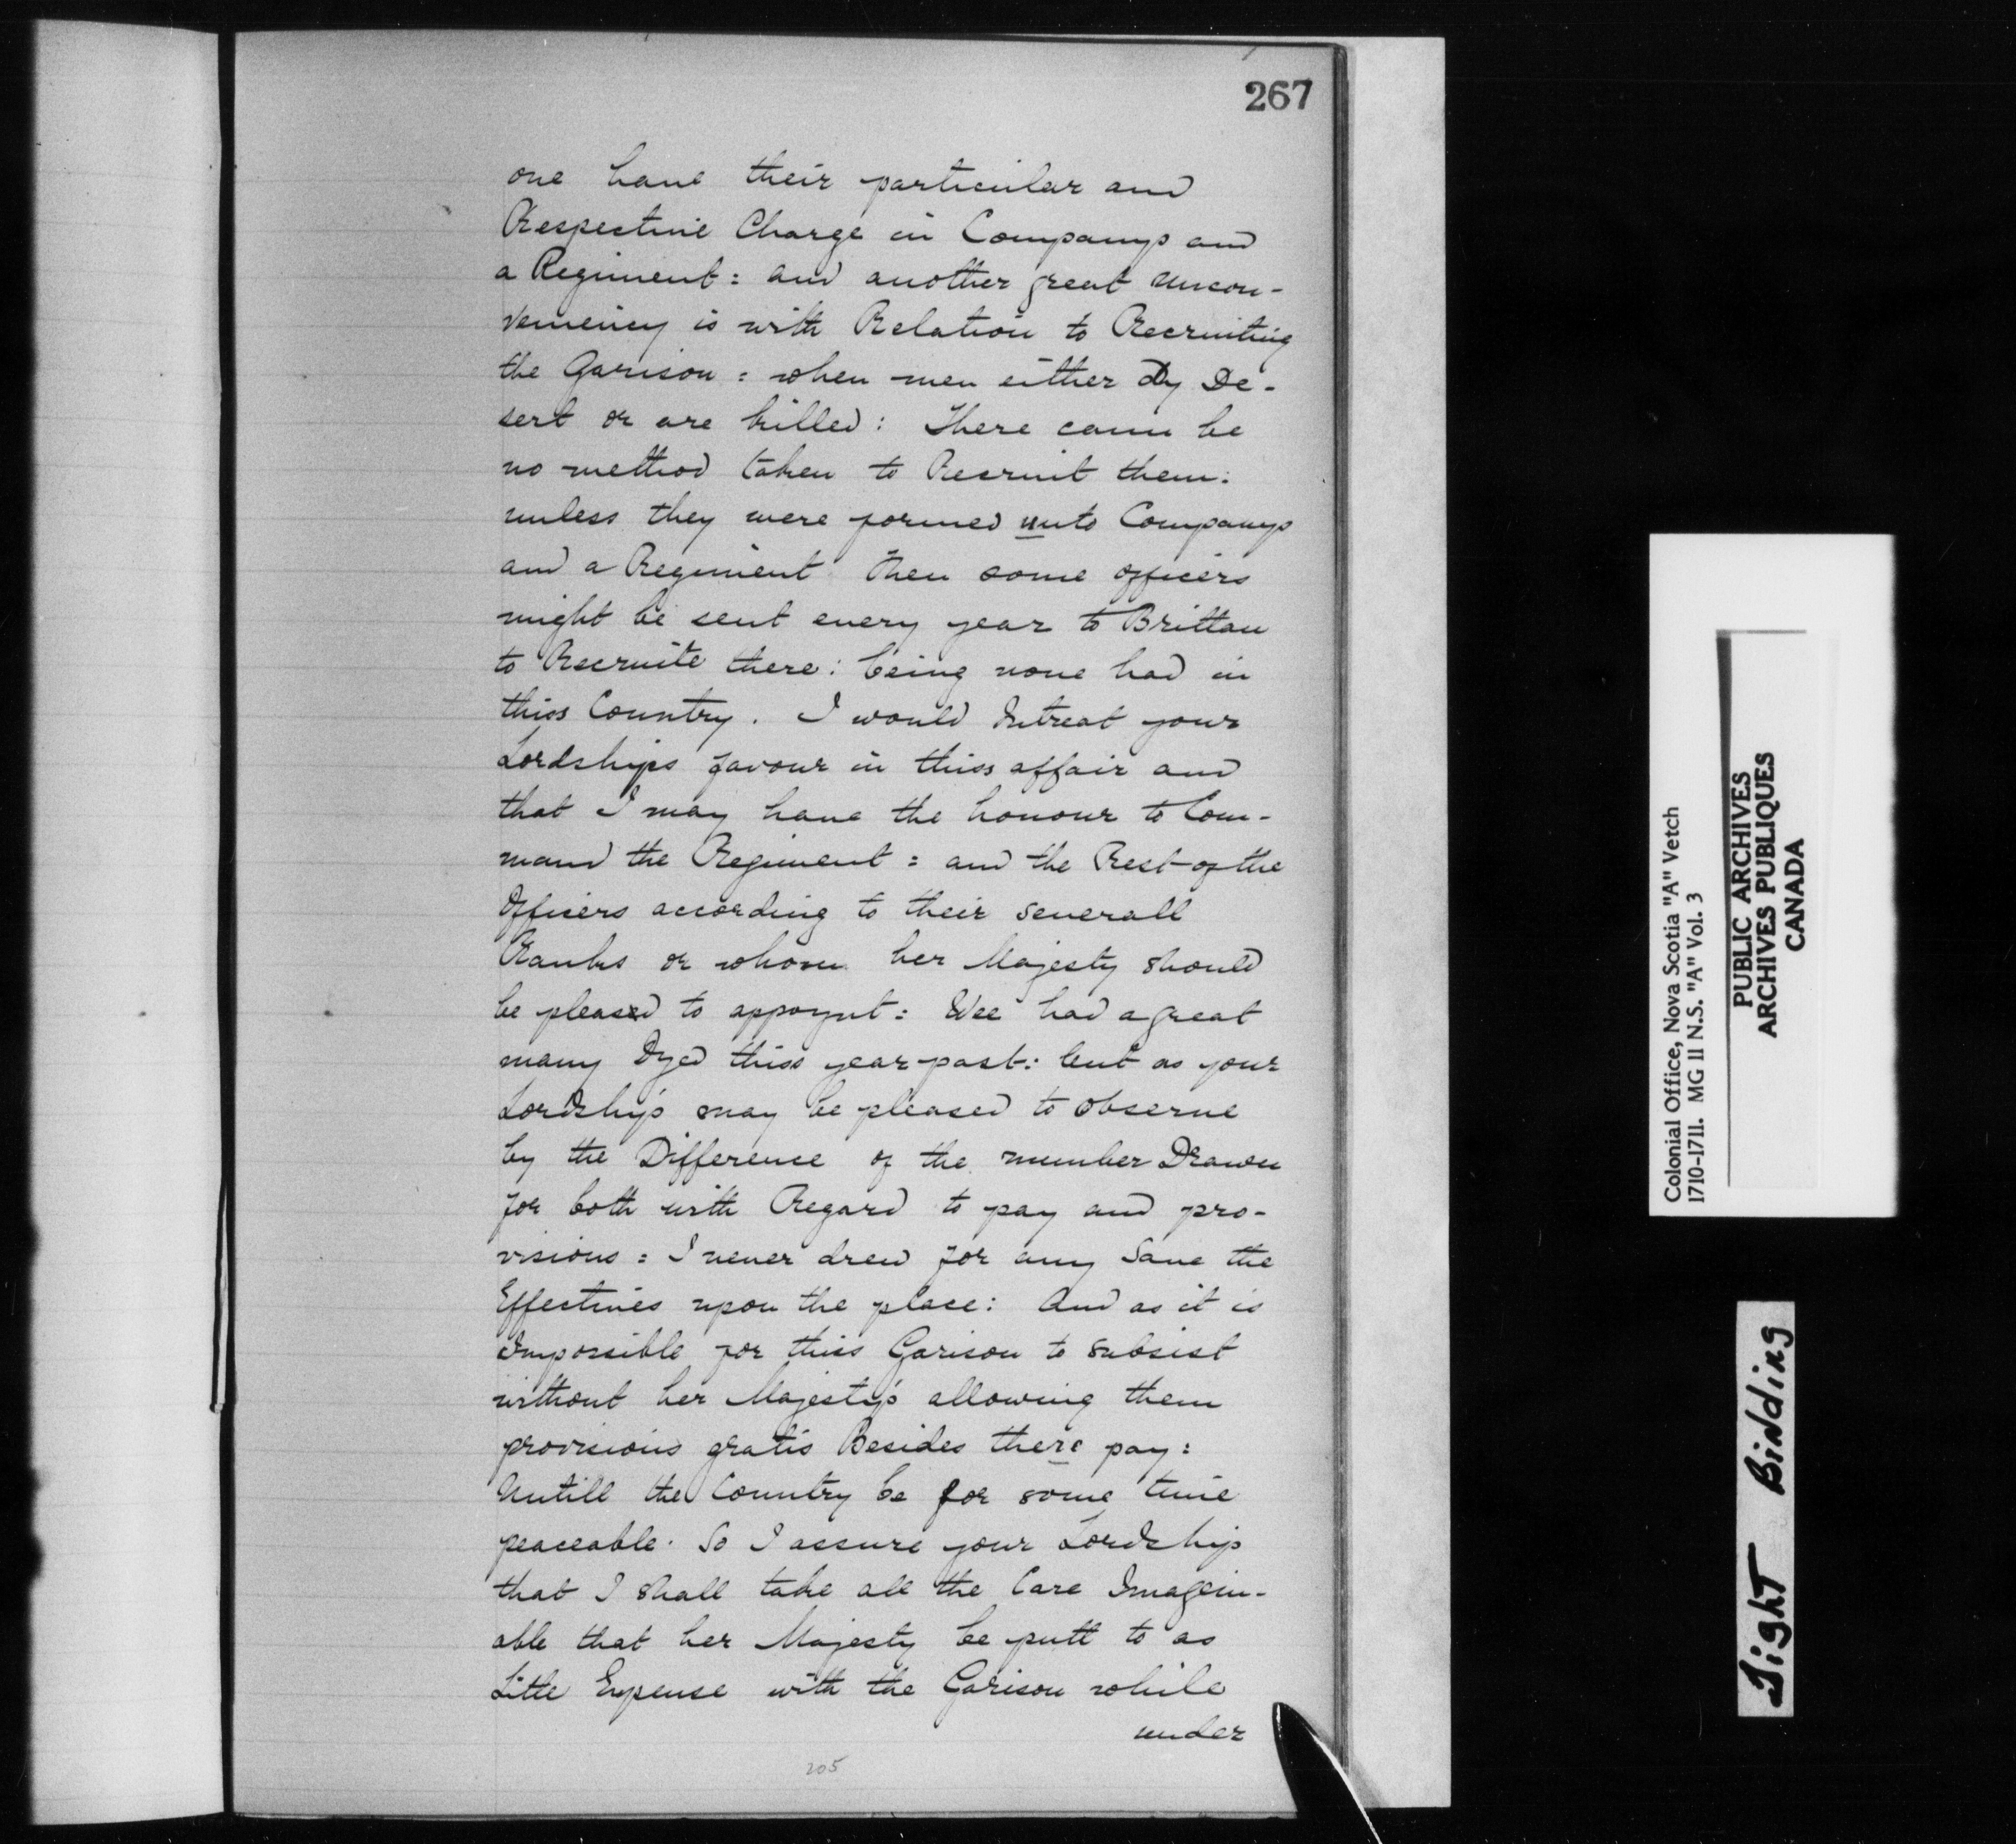 267
one have their particular and
Respective Charge in Companys and
a Regiment: and another great uncon-
veniency is with Relation to Recruiting
the Garison: when men either Dy De-
sert or are killed: There cann be
no method taken to Recruit them:
unless they were formed unto Companys
and a Regiment then some officers
might be sent every year to Brittan
to Recruite there: being none had in
thiss Country. I would Intreat your
Lordships favour in thiss affair and
that I may have the honour to Com-
mand the Regiment: and the Rest of the
Officers according to their severall
Ranks or whom her Majesty should
be pleased to appoynt: Wee had a great
many Dyed thiss year past: but as your
Lordship's may be pleased to observe
by the Difference of the number Drawn
for both with Regard to pay and pro-
visions: I never drew for any Save the
Effectives upon the place: And as it is
Impossible for thiss Garison to subsist
without her Majesty's allowing them
provisions gratis Besides there pay:
Untill the Country be for some time
peaceable. So I assure your Lordship
that I shall take all the Care Imagein-
able that her Majesty be putt to as
Little Expense with the Garison while
under
205
Colonial Office, Nova Scotia "A" Vetch
1710-1711. MG 11 N.S. "A" Vol. 3
PUBLIC ARCHIVES
ARCHIVES PUBLIQUES
CANADA
Tight Binding